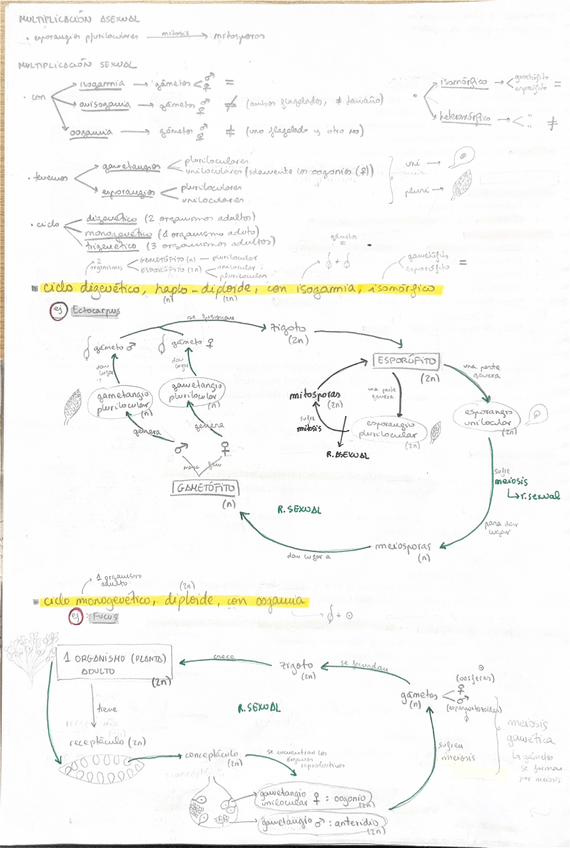 MULTIPLICACIÓN ASEXUAL
· esporangios pluriloculares mitosis mitosporas
MULTIPLICACIÓN SEXUAL
· con
isogamia → gámetos ♂ ♀ =
anisogamia → gámetos ♂ ♀ ≠ (ambos flagelados, ≠ tamaño)
oogamia → gámetos ♂ ♀ ≠ (uno flagelado y otro no)
isomórfico gametófito esporófito =
heteromórfico " " ≠
· tenemos
gametangios
pluriloculares
uniloculares (solamente los oogonios (♀))
esporangios
pluriloculares
uniloculares
uni →
pluri →
· ciclo
digenético (2 organismos adultos)
monogenético (1 organismo adulto)
trigenético (3 organismos adultos)
2 organismos
GAMETÓFITO (n) — plurilocular
ESPORÓFITO (2n) unilocular plurilocular
gámetos =
gametófito
esporófito =
ciclo digenético, haplo-diploide, con isogamia, isomórfico
(n) (2n)
ej Ectocarpus
se fusionan
gámeto ♂
gámeto ♀
zigoto
(2n)
dan lugar
dan lugar
gametangio
plurilocular
(n)
gametangio
plurilocular
(n)
genera
genera
♂ ♀
GAMETÓFITO
(n)
ESPORÓFITO
(2n)
una parte
genera
una parte
genera
mitosporas
(2n)
sufre
mitosis
esporangio
plurilocular
(2n)
R.ASEXUAL
esporangio
unilocular
(2n)
sufre
meiosis
↳ r.sexual
para dar
lugar
R. SEXUAL
meiosporas
(n)
dan lugar a
1 organismo
adulto
(2n)
ciclo monogenético, diploide, con oogamia
ej: Fucus
1 ORGANISMO (PLANTA)
ADULTO
(2n)
crece
zigoto
(2n)
se fusionan
gámetos
(n)
(oosferas)
♀
♂
(espermatozoides)
meiosis
gamética
↳ gámeto
se forman
por meiosis
R. SEXUAL
tiene
receptáculo (2n)
conceptáculo
(2n)
se encuentran los
órganos
reproductivos
sufren
meiosis
gametangio
unilocular ♀: oogonio
(2n)
gametangio ♂: anteridio
(2n)